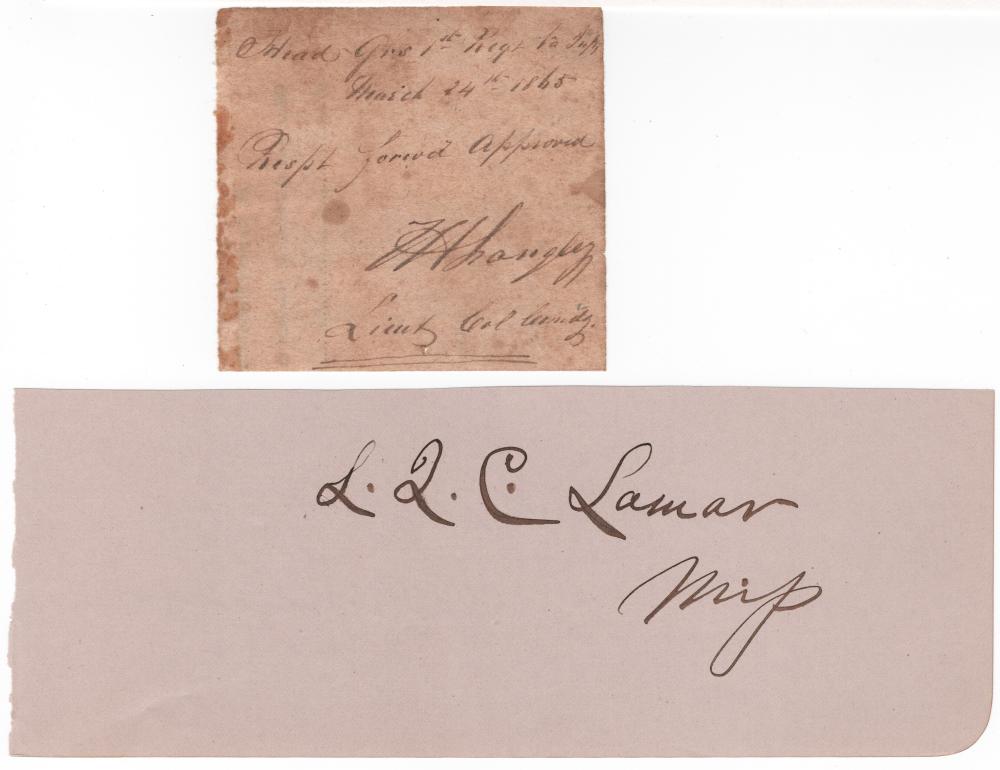 Head Qrs 1st Regt Va Infy
March 24th 1865
Respt forwd Approved
Langley
Lieut Col Comdg.
L. Q. C. Lamar
Miſs